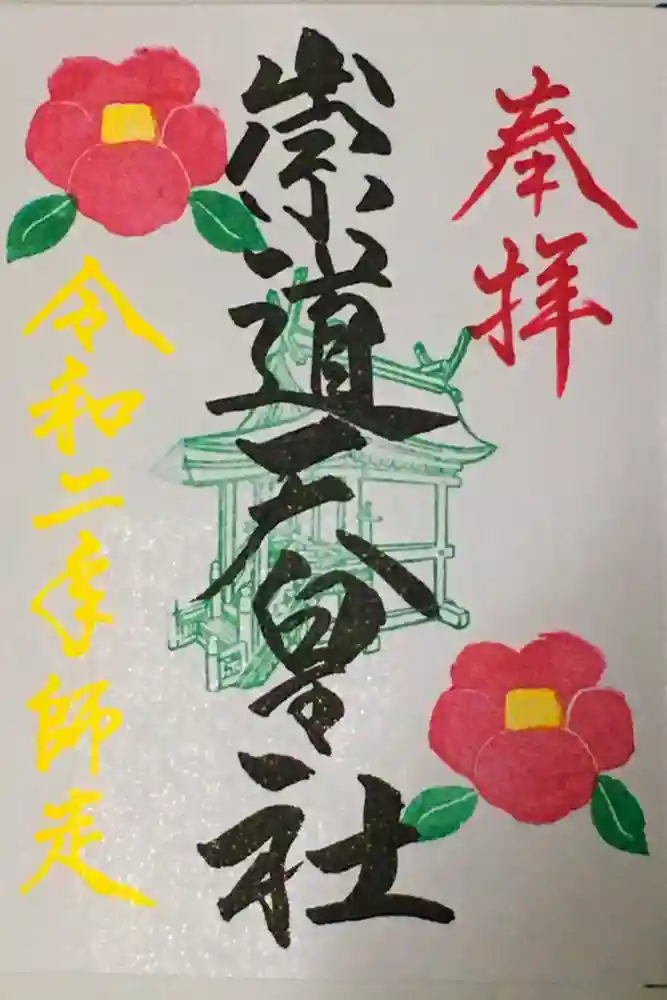 奉拝
崇道天皇社
令和二年師走